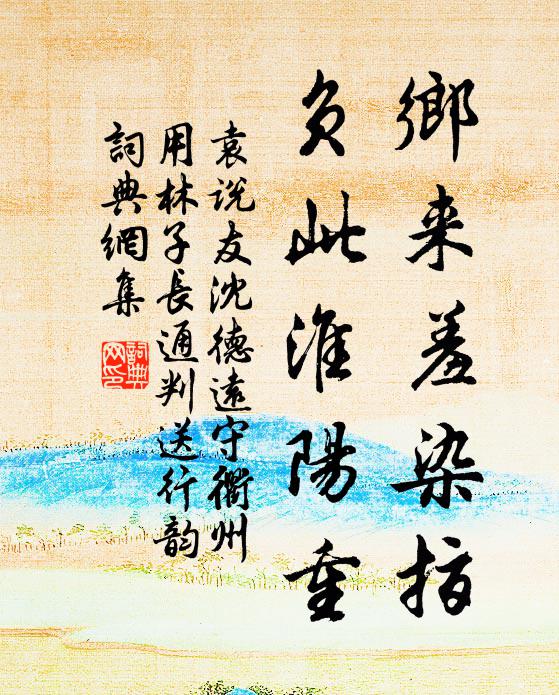 鄉来羞染指
負此淮陽重
袁説友沈德遠守衢州
用林子長通判送行韵
詞典網集
詞典
网印